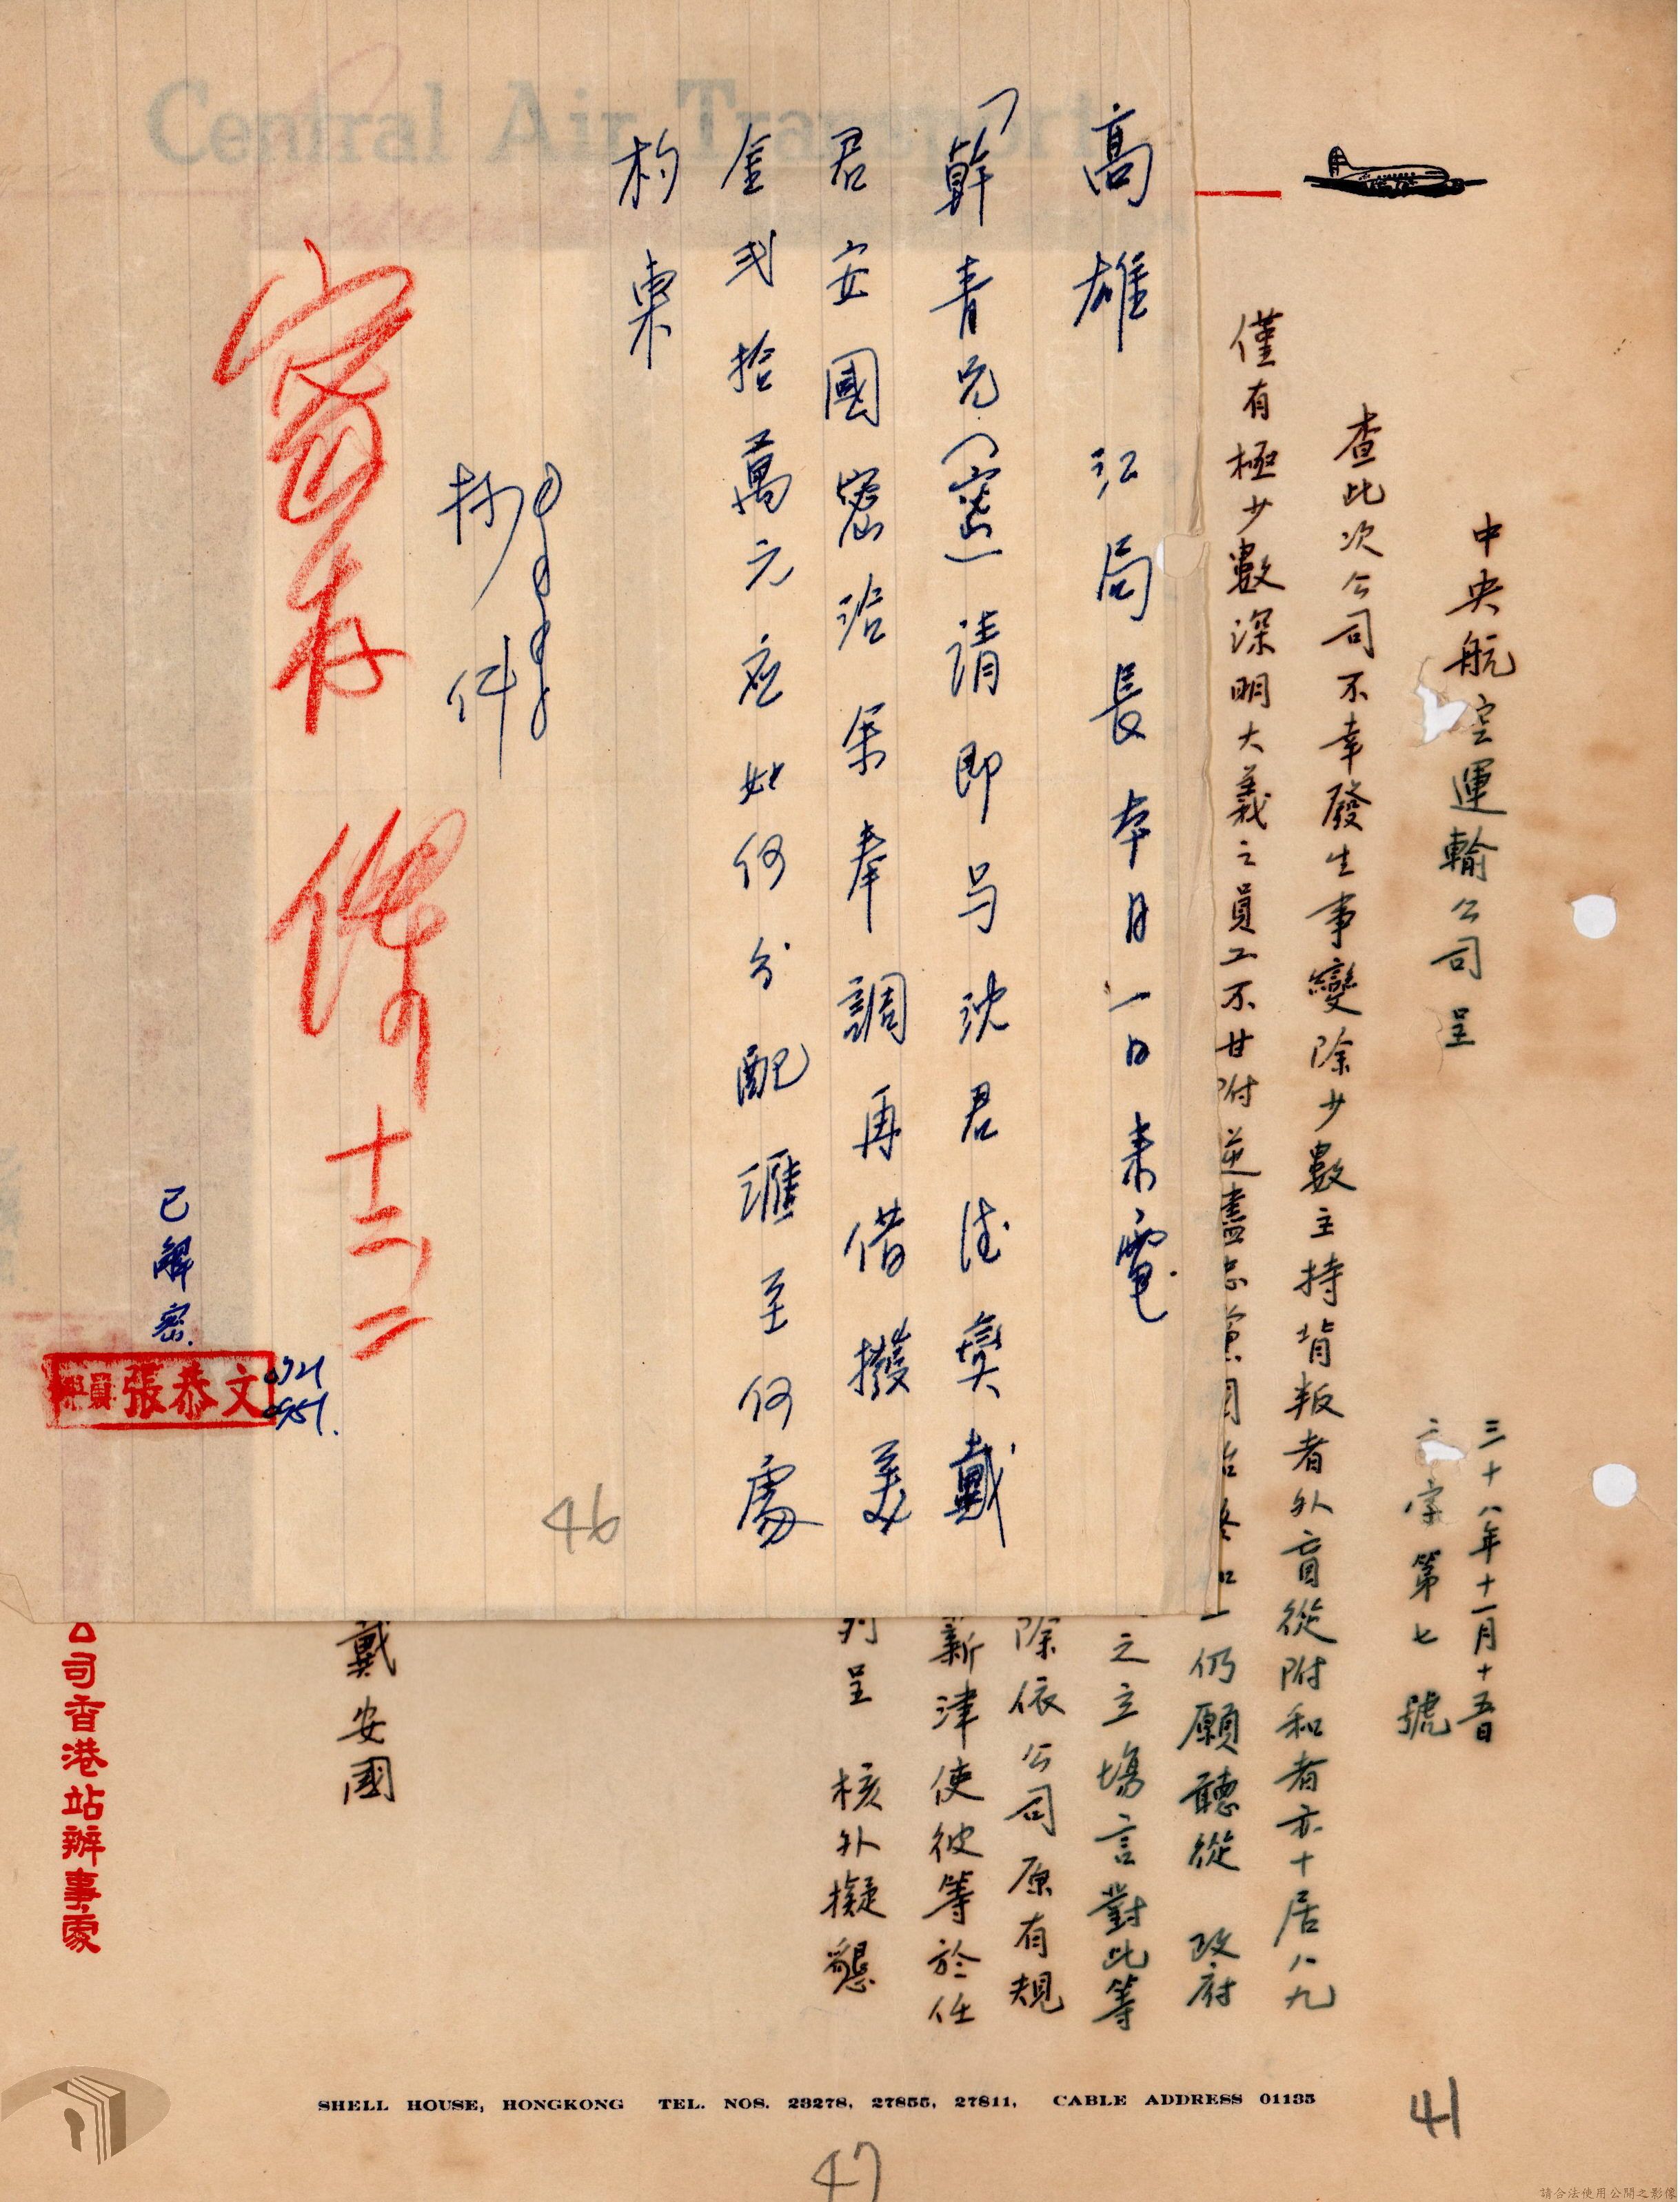 Central Air Transport
中央航空運輸公司 呈
三十八年十一月十五日
字第七號
查此次公司不幸發生事變除少數主持背叛者外盲從附和者亦十居八九
僅有極少數深明大義之員工不甘附逆
仍願聽從 政府
之立場言對此等
除依公司原有規
薪津使彼等於任
列呈 核外擬懇
戴安國
高雄 江局長本月一日來電
「幹青兄(密)請即与沈君德燮戴
君安國密洽渠奉調再借撥美
金弍拾萬元應如何分配滙至何處
杓東
抄件
密存
十二、二
已解密
張恭文
0721
0951.
46
公司香港站辦事處
SHELL HOUSE, HONGKONG TEL. NOS. 23278, 27855, 27811, CABLE ADDRESS 01135
41
47
請合法使用公開之影像